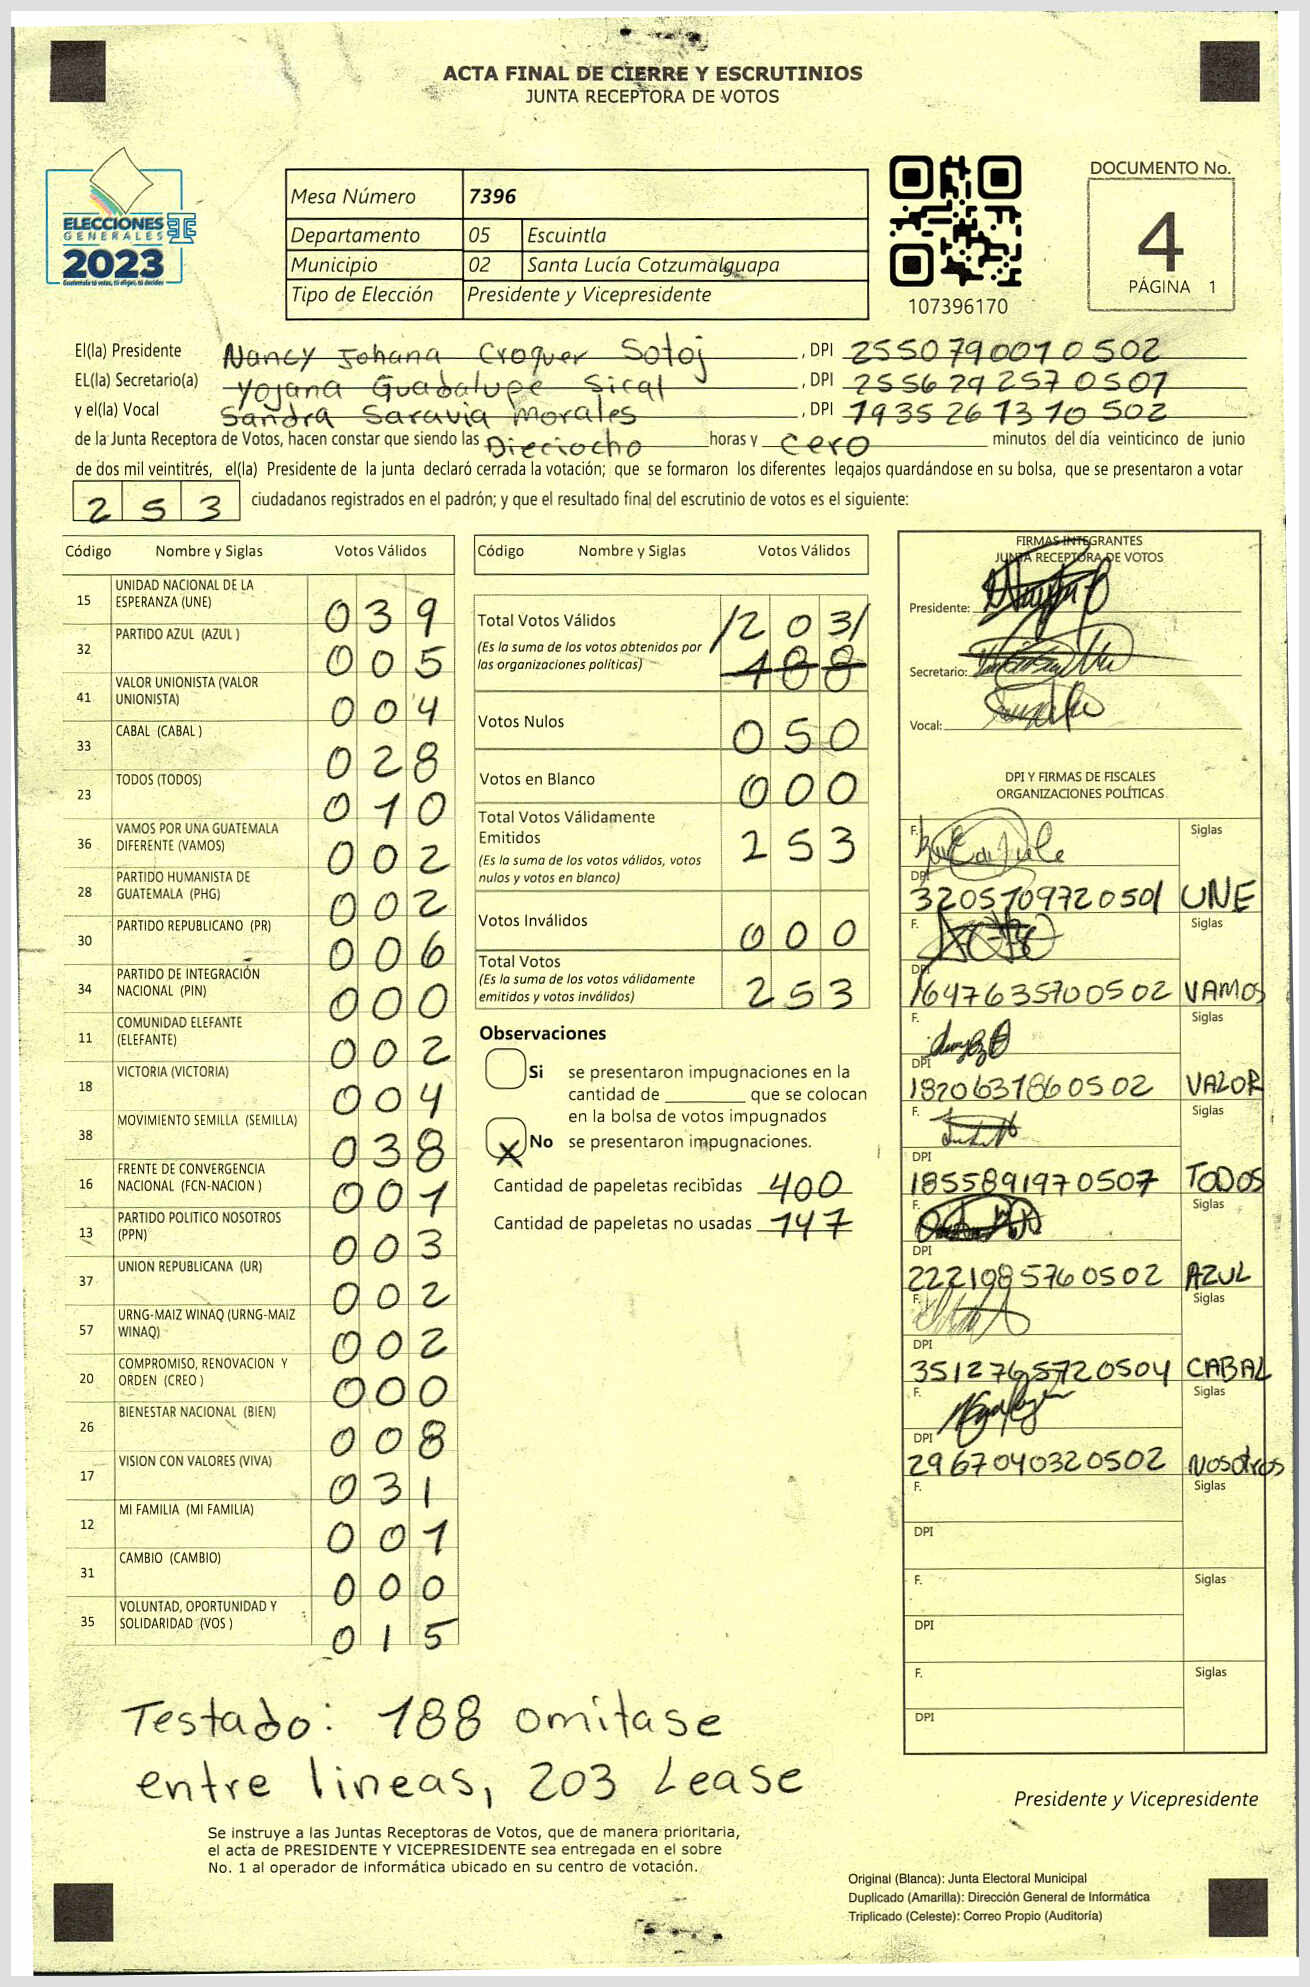 ACTA FINAL DE CIERRE Y ESCRUTINIOS
JUNTA RECEPTORA DE VOTOS
ELECCIONES
GENERALES
2023
Guatemala tú votas, tú eliges, tú decides
Mesa Número 7396
Departamento 05 Escuintla
Municipio 02 Santa Lucía Cotzumalguapa
Tipo de Elección Presidente y Vicepresidente
107396170
DOCUMENTO No.
4
PÁGINA 1
El(la) Presidente Nancy Johana Croquer Sotoj, DPI 2550790010502
EL(la) Secretario(a) Yojana Guadalupe Sical, DPI 2556292570501
y el(la) Vocal Sandra Saravia Morales, DPI 1935261310502
de la Junta Receptora de Votos, hacen constar que siendo las Dieciocho horas y cero minutos del día veinticinco de junio
de dos mil veintitrés, el(la) Presidente de la junta declaró cerrada la votación; que se formaron los diferentes legajos guardándose en su bolsa, que se presentaron a votar
253 ciudadanos registrados en el padrón; y que el resultado final del escrutinio de votos es el siguiente:
Código Nombre y Siglas Votos Válidos
15 UNIDAD NACIONAL DE LA ESPERANZA (UNE) 039
32 PARTIDO AZUL (AZUL ) 005
41 VALOR UNIONISTA (VALOR UNIONISTA) 004
33 CABAL (CABAL ) 028
23 TODOS (TODOS) 010
36 VAMOS POR UNA GUATEMALA DIFERENTE (VAMOS) 002
28 PARTIDO HUMANISTA DE GUATEMALA (PHG) 002
30 PARTIDO REPUBLICANO (PR) 006
34 PARTIDO DE INTEGRACIÓN NACIONAL (PIN) 000
11 COMUNIDAD ELEFANTE (ELEFANTE) 002
18 VICTORIA (VICTORIA) 004
38 MOVIMIENTO SEMILLA (SEMILLA) 038
16 FRENTE DE CONVERGENCIA NACIONAL (FCN-NACION ) 001
13 PARTIDO POLITICO NOSOTROS (PPN) 003
37 UNION REPUBLICANA (UR) 002
57 URNG-MAIZ WINAQ (URNG-MAIZ WINAQ) 002
20 COMPROMISO, RENOVACION Y ORDEN (CREO ) 000
26 BIENESTAR NACIONAL (BIEN) 008
17 VISION CON VALORES (VIVA) 031
12 MI FAMILIA (MI FAMILIA) 001
31 CAMBIO (CAMBIO) 000
35 VOLUNTAD, OPORTUNIDAD Y SOLIDARIDAD (VOS ) 015
Código Nombre y Siglas Votos Válidos
Total Votos Válidos /203/
(Es la suma de los votos obtenidos por
las organizaciones políticas) 188
Votos Nulos 050
Votos en Blanco 000
Total Votos Válidamente
Emitidos 253
(Es la suma de los votos válidos, votos
nulos y votos en blanco)
Votos Inválidos 000
Total Votos
(Es la suma de los votos válidamente
emitidos y votos inválidos) 253
Observaciones
Si se presentaron impugnaciones en la
cantidad de ________ que se colocan
en la bolsa de votos impugnados
X No se presentaron impugnaciones.
Cantidad de papeletas recibidas 400
Cantidad de papeletas no usadas 147
FIRMAS INTEGRANTES
JUNTA RECEPTORA DE VOTOS
Presidente:
Secretario:
Vocal:
DPI Y FIRMAS DE FISCALES
ORGANIZACIONES POLÍTICAS
F. Siglas
DPI
3205109720501 UNE
F. Siglas
DPI
1647635700502 VAMOS
F. Siglas
DPI
1820631860502 VALOR
F. Siglas
DPI
1855891970507 TODOS
F. Siglas
DPI
2221085760502 AZUL
F. Siglas
DPI
3512765720504 CABAL
F. Siglas
DPI
2967040320502 Nosotros
F. Siglas
DPI
F. Siglas
DPI
F. Siglas
DPI
Testado: 188 omitase
entre lineas, 203 Lease
Presidente y Vicepresidente
Se instruye a las Juntas Receptoras de Votos, que de manera prioritaria,
el acta de PRESIDENTE Y VICEPRESIDENTE sea entregada en el sobre
No. 1 al operador de informática ubicado en su centro de votación.
Original (Blanca): Junta Electoral Municipal
Duplicado (Amarilla): Dirección General de Informática
Triplicado (Celeste): Correo Propio (Auditoría)